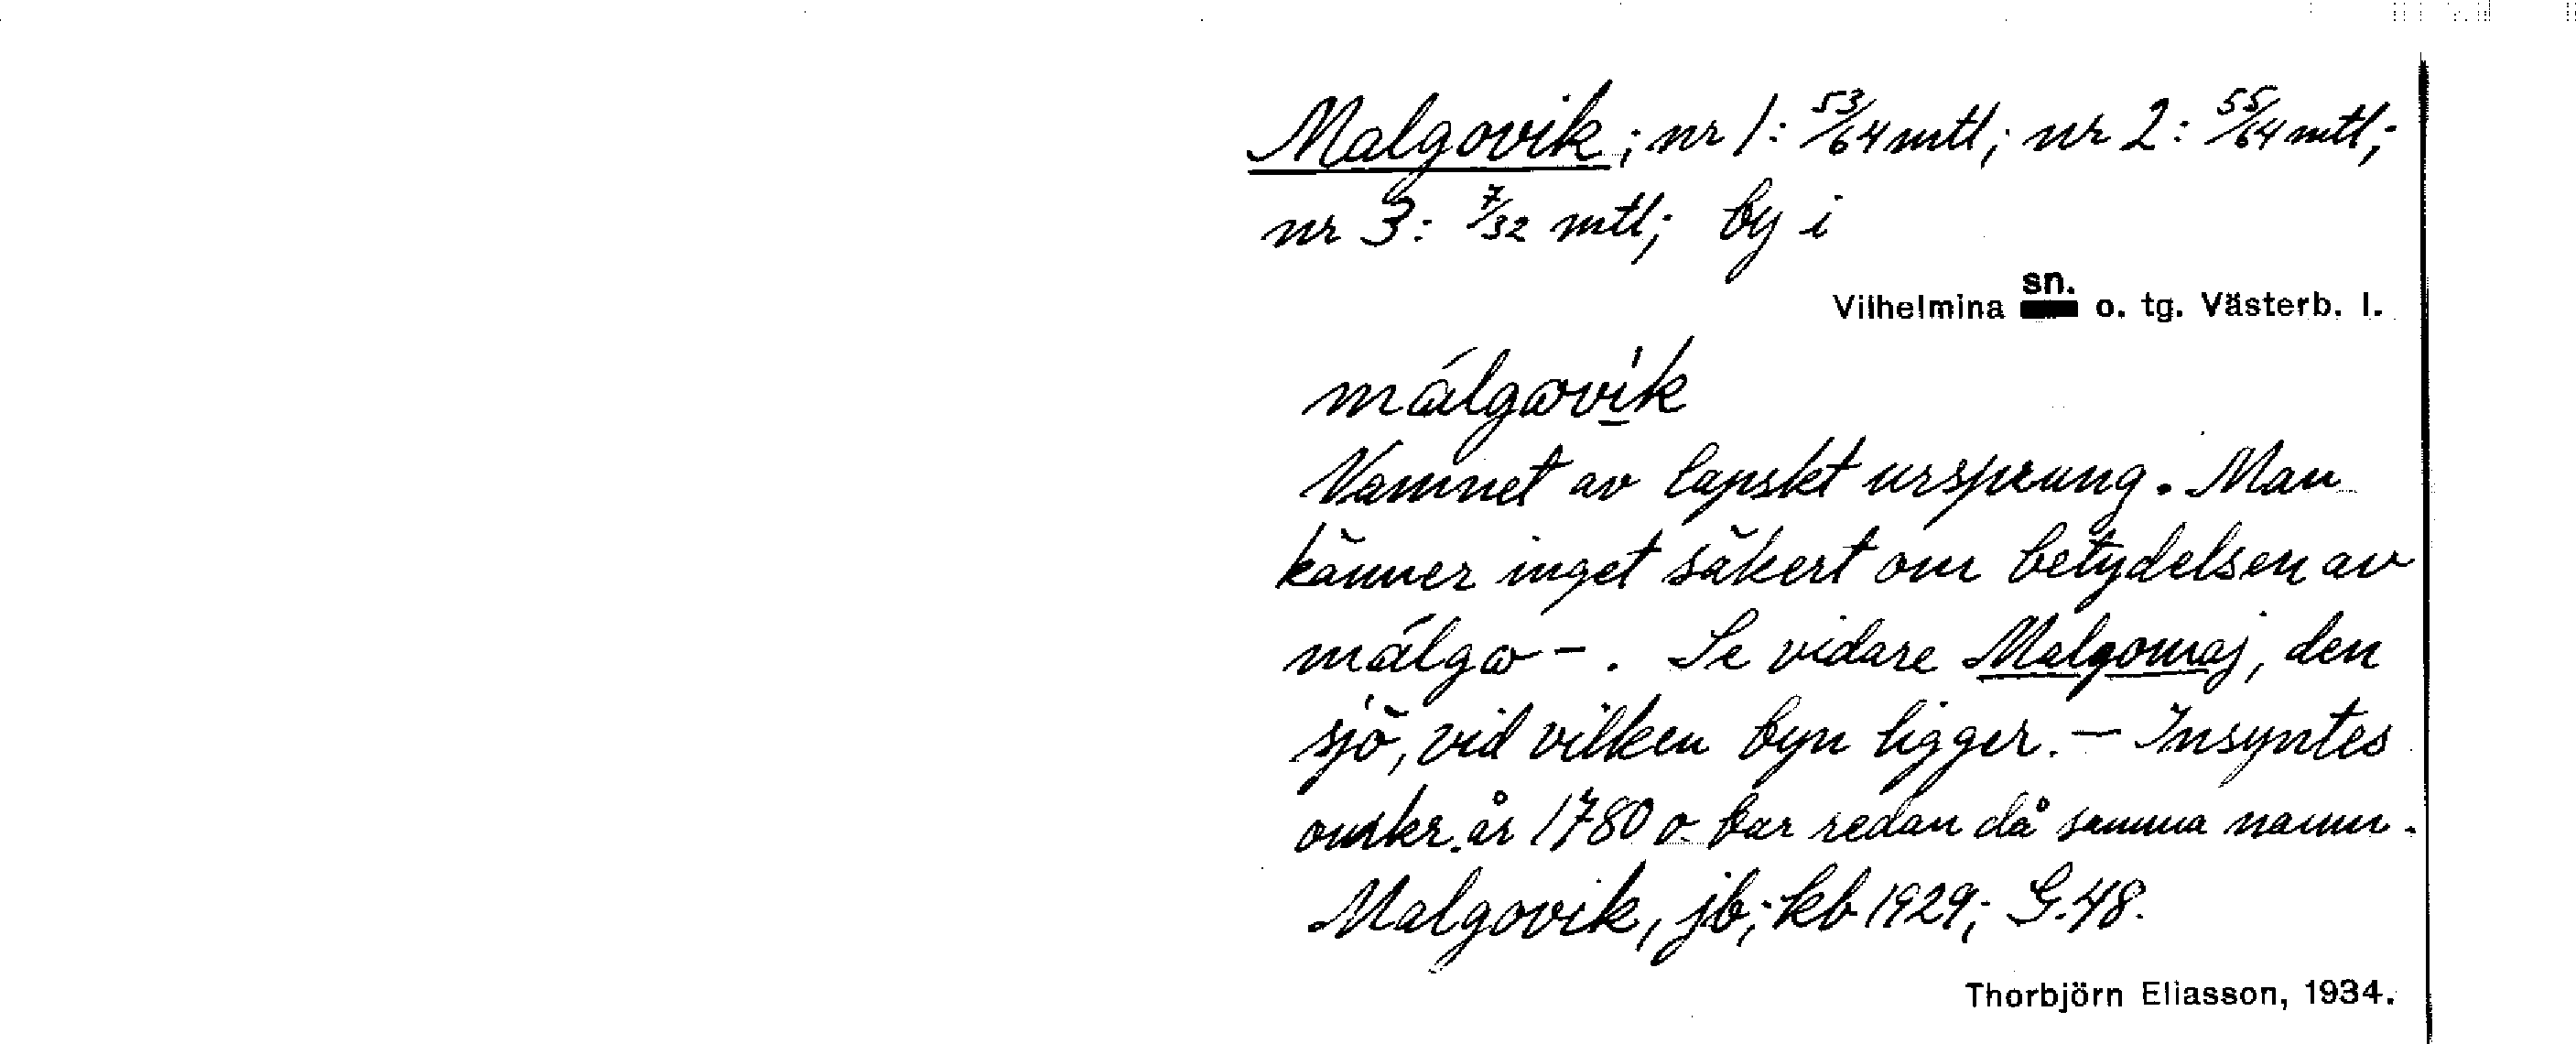 Malgovik; nr 1: 53/64 mtl; nr 2: 55/64 mtl;
nr 3: 7/32 mtl; by i
Vilhelmina sn. o. tg. Västerb. l.
málgωvìk
Namnet av lapskt ursprung. Man
känner inget säkert om betydelsen av
málgω-. Se vidare Malgomaj, den
sjö, vid vilken byn ligger. – Insyntes
omkr. år 1780 o. bar redan då samma namn.
Malgovik, jb; kb 1929; G. 48.
Thorbjörn Eliasson, 1934.